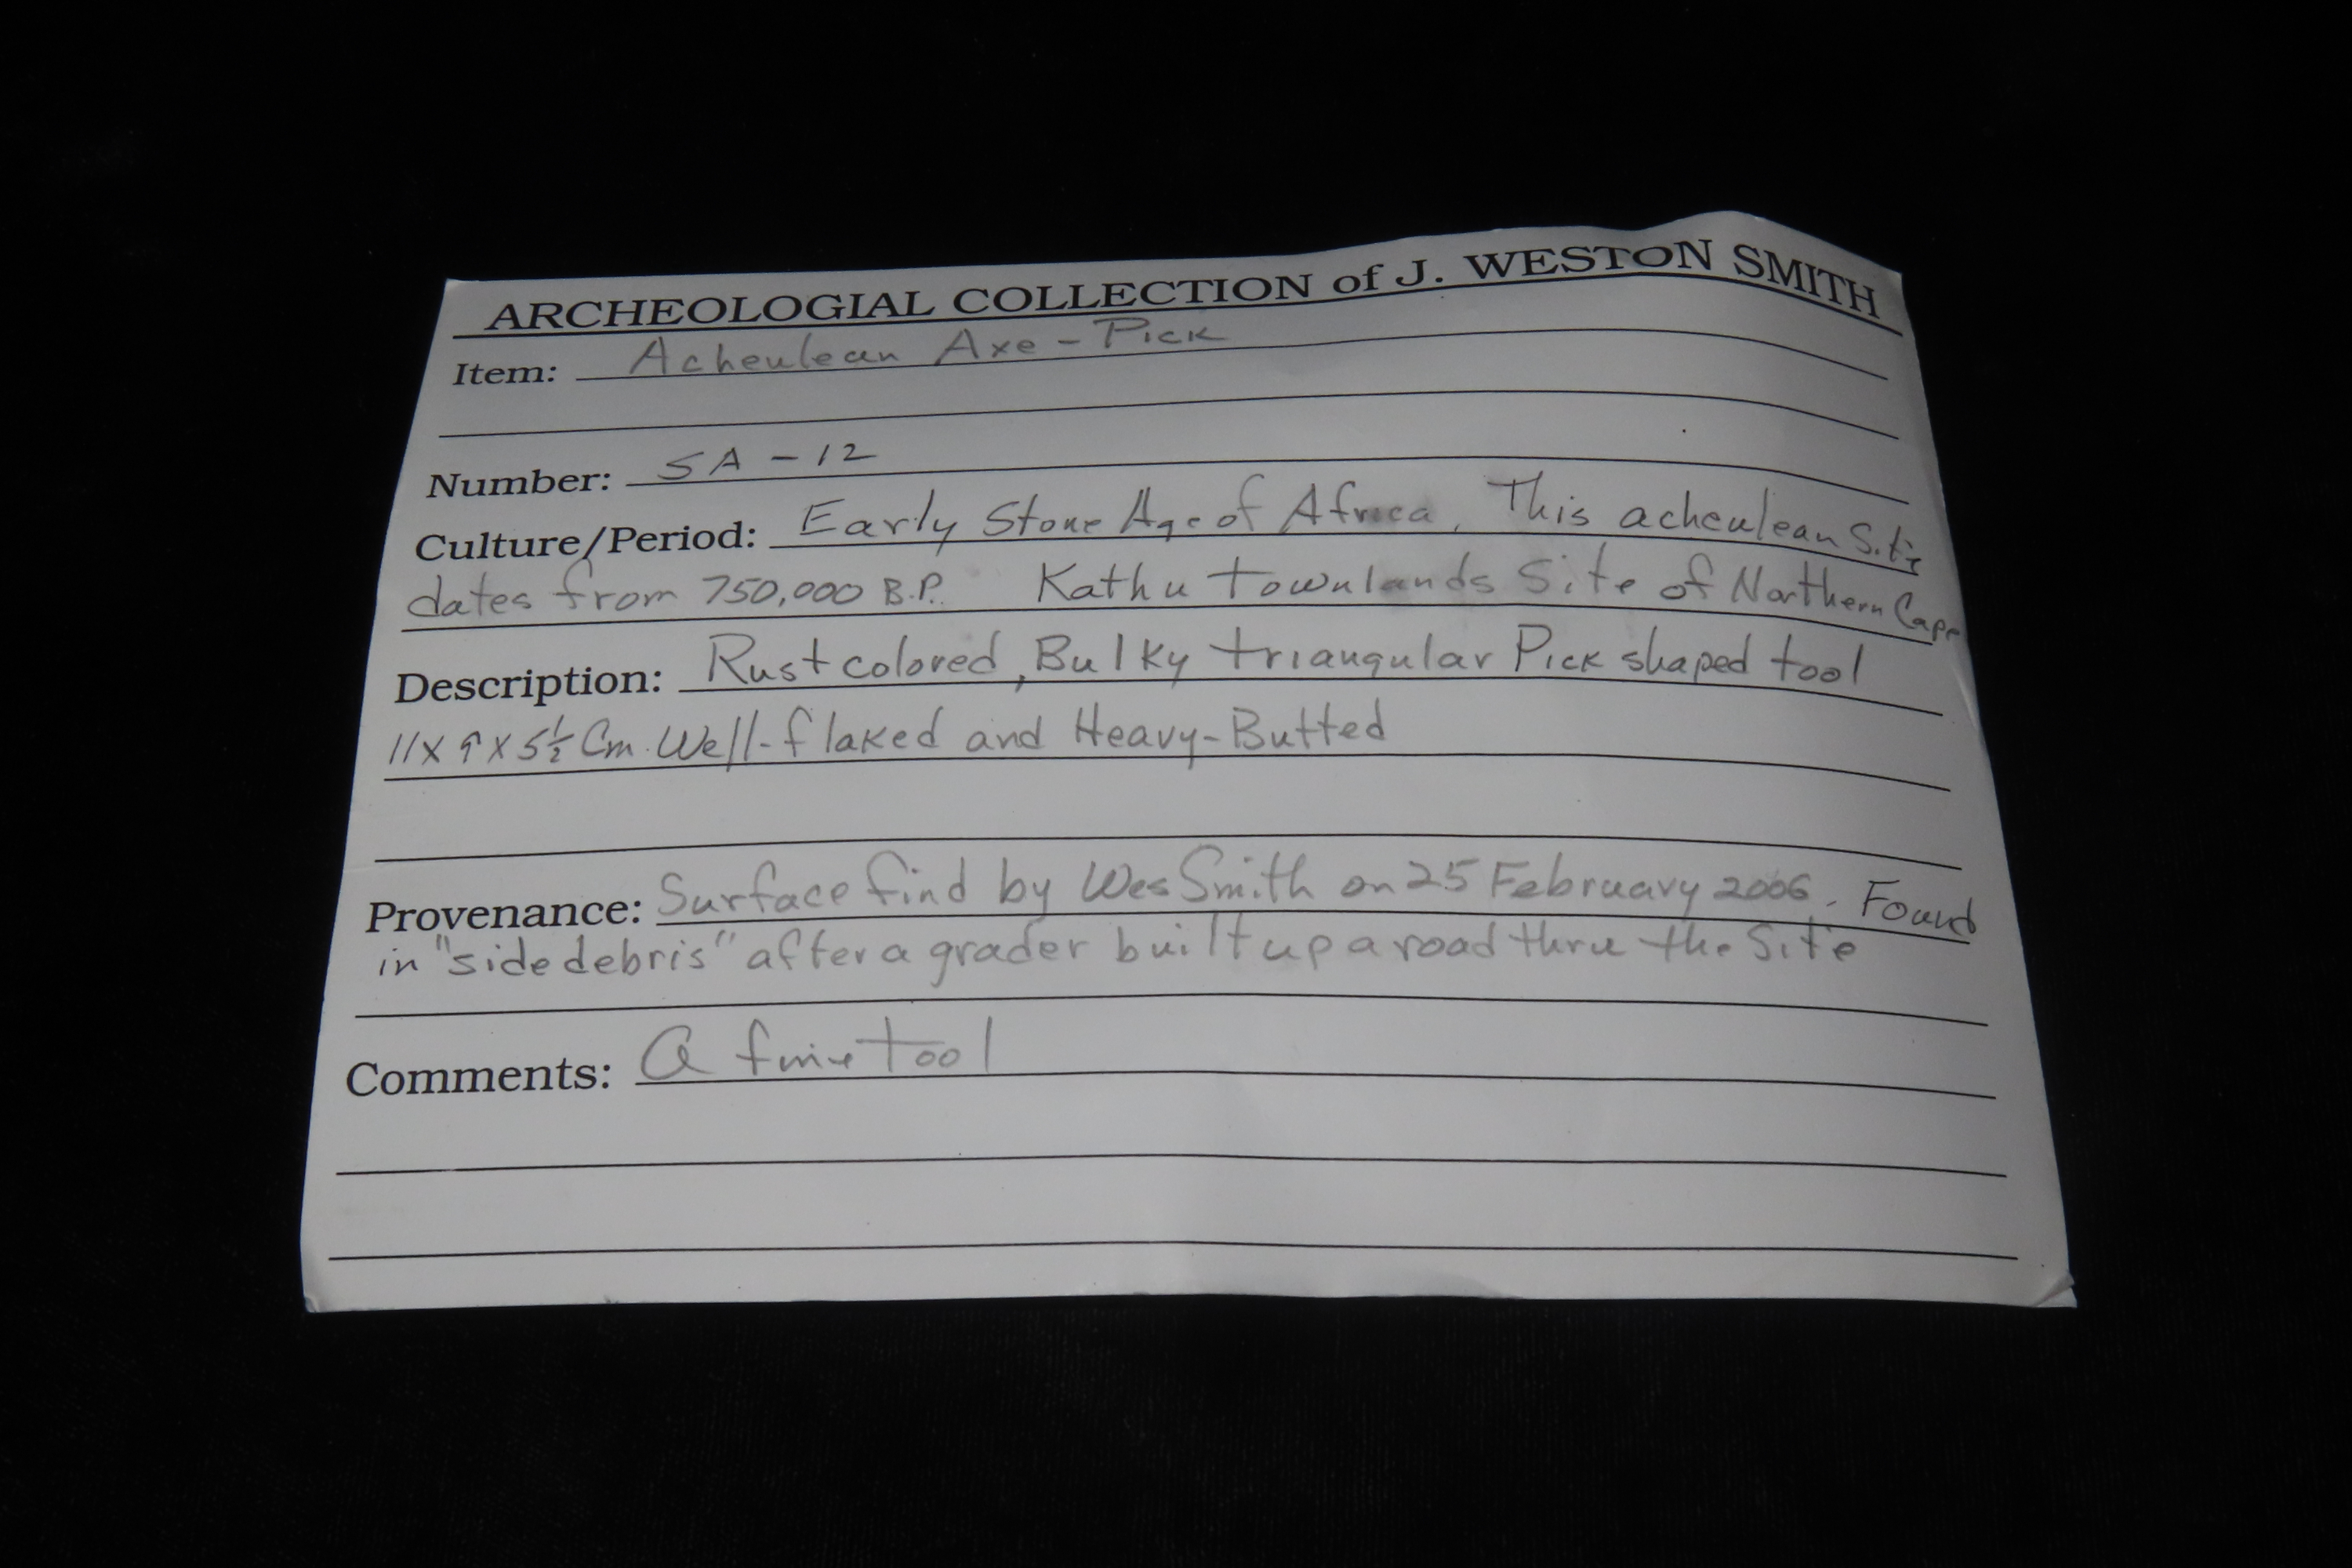 ARCHEOLOGIAL COLLECTION of J. WESTON SMITH
Item: Acheulean Axe-Pick
Number: SA-12
Culture/Period: Early Stone Age of Africa. This acheulean Site
dates from 750,000 B.P. Kathu Townlands Site of Northern Cape
Description: Rust colored, Bulky triangular Pick shaped tool
11 x 9 x 5½ Cm. Well-flaked and Heavy-Butted
Provenance: Surface find by Wes Smith on 25 February 2006. Found
in "side debris" after a grader built up a road thru the Site
Comments: A fine tool